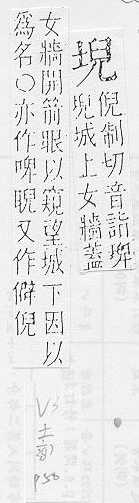 堄
倪制切音詣埤
堄城上女牆蓋
女牆開箭眼以窺望城下因以
爲名○亦作啤睨又作僻倪
V3
土部
p50